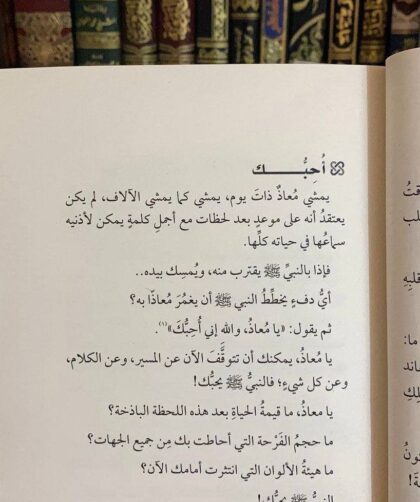 أُحِبُّـــــك
يمشي مُعاذٌ ذاتَ يوم، يمشي كما يمشي الآلاف، لم يكن
يعتقدُ أنه على موعدٍ بعد لحظات مع أجملِ كلمةٍ يمكن لأذنيه
سماعُها في حياته كلِّها.
فإذا بالنبيِّ ﷺ يقترب منه، ويُمسِك بيده..
أيُّ دفءٍ يخطِّطُ النبي ﷺ أن يغمُرَ مُعاذًا به؟
ثم يقول: «يا مُعاذ، والله إني أُحِبُّكَ»(١).
يا مُعاذُ، يمكنك أن تتوقَّفَ الآن عن المسير، وعن الكلام،
وعن كل شيءٍ؛ فالنبيُّ ﷺ يحبُّك!
يا معاذُ، ما قيمةُ الحياةِ بعد هذه اللحظة الباذخة؟
ما حجمُ الفَرْحة التي أحاطت بك مِن جميع الجهات؟
ما هيئةُ الألوان التي انتثرت أمامك الآن؟
النبيُّ ﷺ يحبُّك!